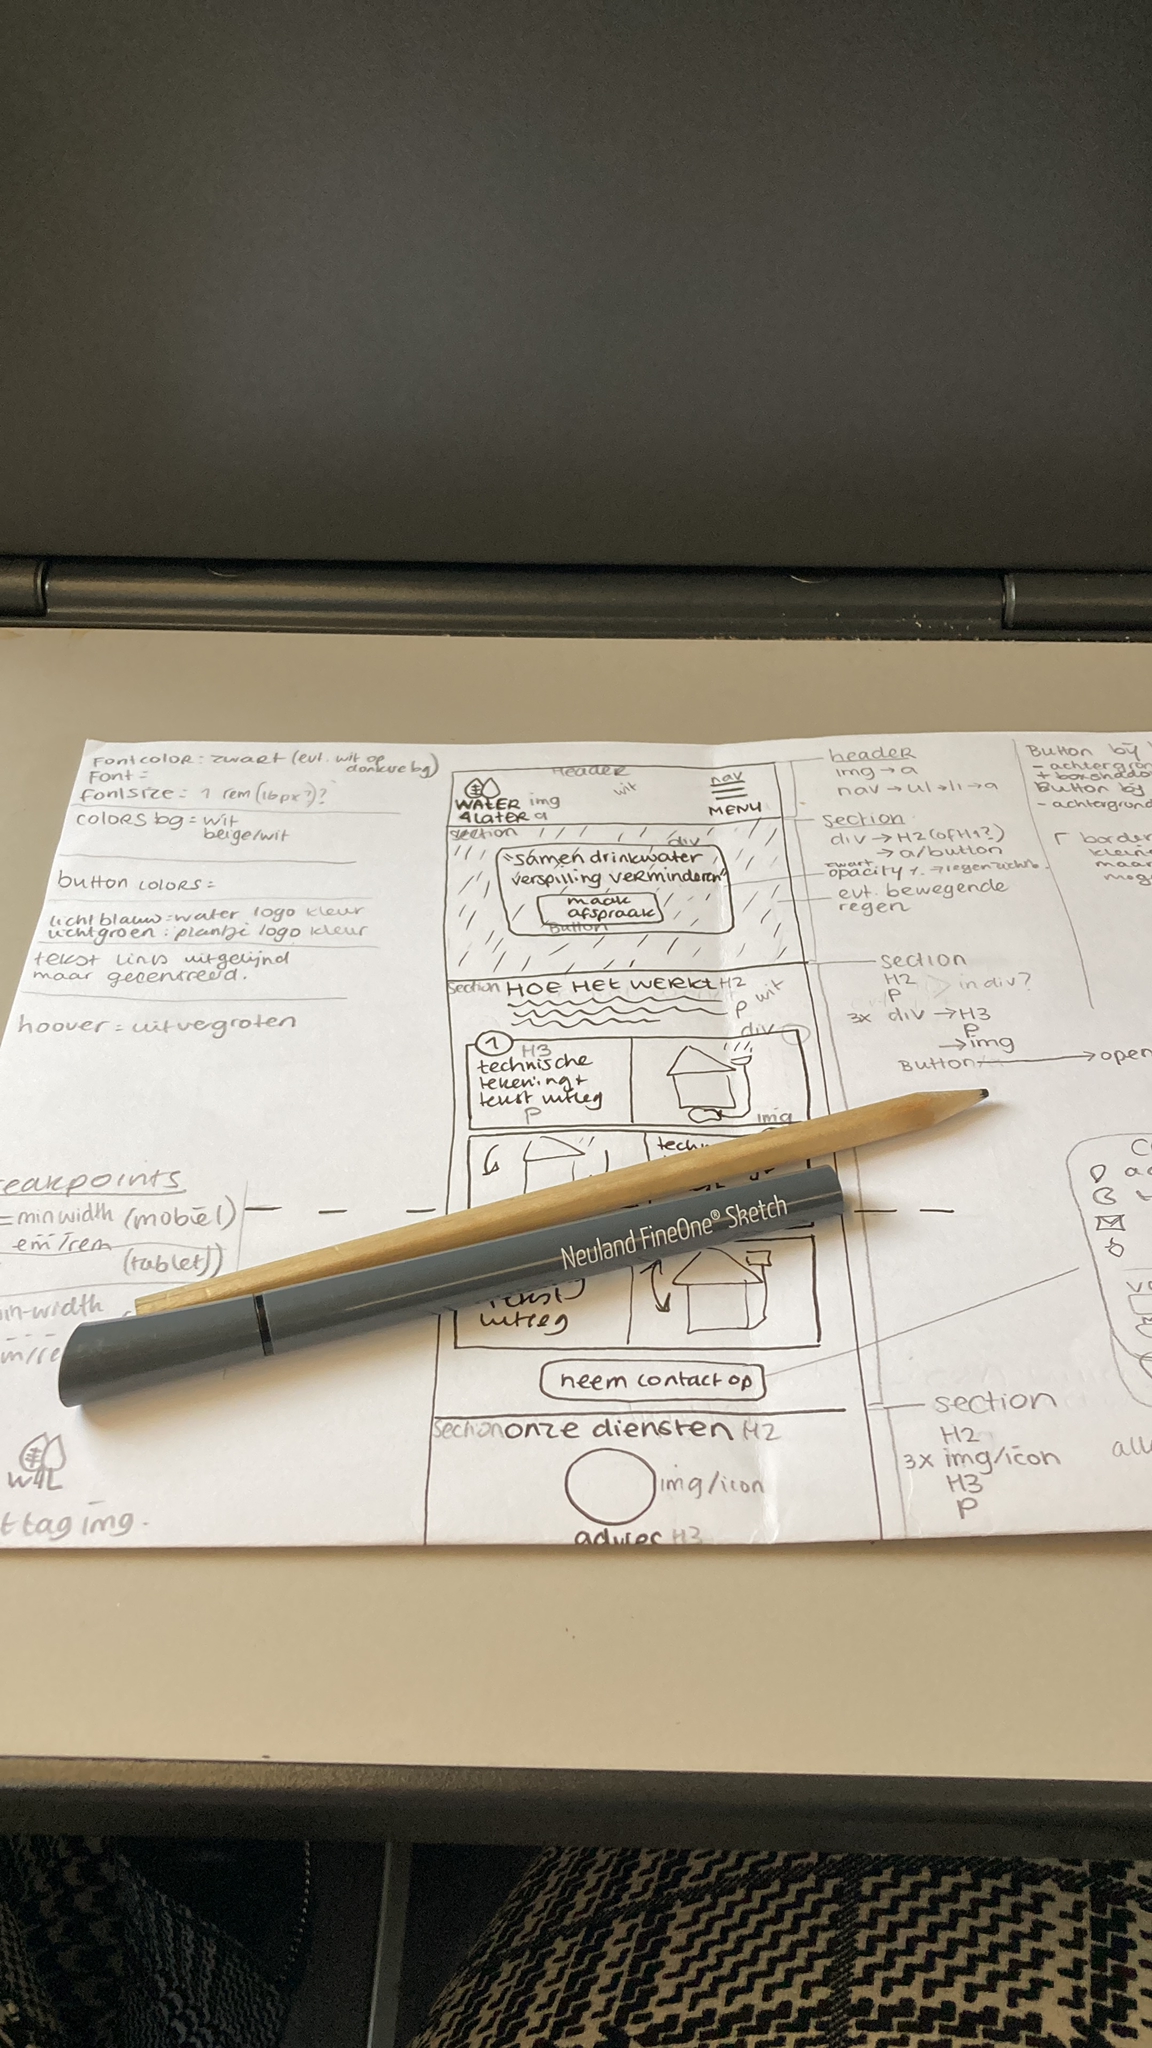 Fontcolor: zwart (evt. wit op
donkere bg)
Font =
fontsize = 1 rem (16px?)?
colors bg = wit
beige/wit
button colors =
lichtblauw = water logo kleur
lichtgroen : plantje logo kleur
tekst links uitgelijnd
maar gecentreerd.
hoover = uitvergroten
eakpoints
= min width (mobiel)
em/rem
(tablet)
in-width
W4L
t tag img.
Header
WATER img
4LATER a
wit
nav
MENU
section
div
"samen drinkwater
verspilling verminderen"
maak
afspraak
Button
section HOE HET WERKT H2
p wit
div
1 H3
technische
tekening +
tekst uitleg
p
img
tech
Neuland FineOne® Sketch
tekst
uitleg
neem contact op
section onze diensten H2
img/icon
advies H3
header
img → a
nav → ul → li → a
section
div → H2 (of H1?)
→ a/button
zwart
opacity
evt. bewegende
regen
section
H2
P
in div?
3x div → H3
P
→ img
Button → open
section
H2
3x img/icon
H3
P
Button bij
- achtergron
+ boxshaddo
Button bij
- achtergrond
border
klein
maar
mog
all